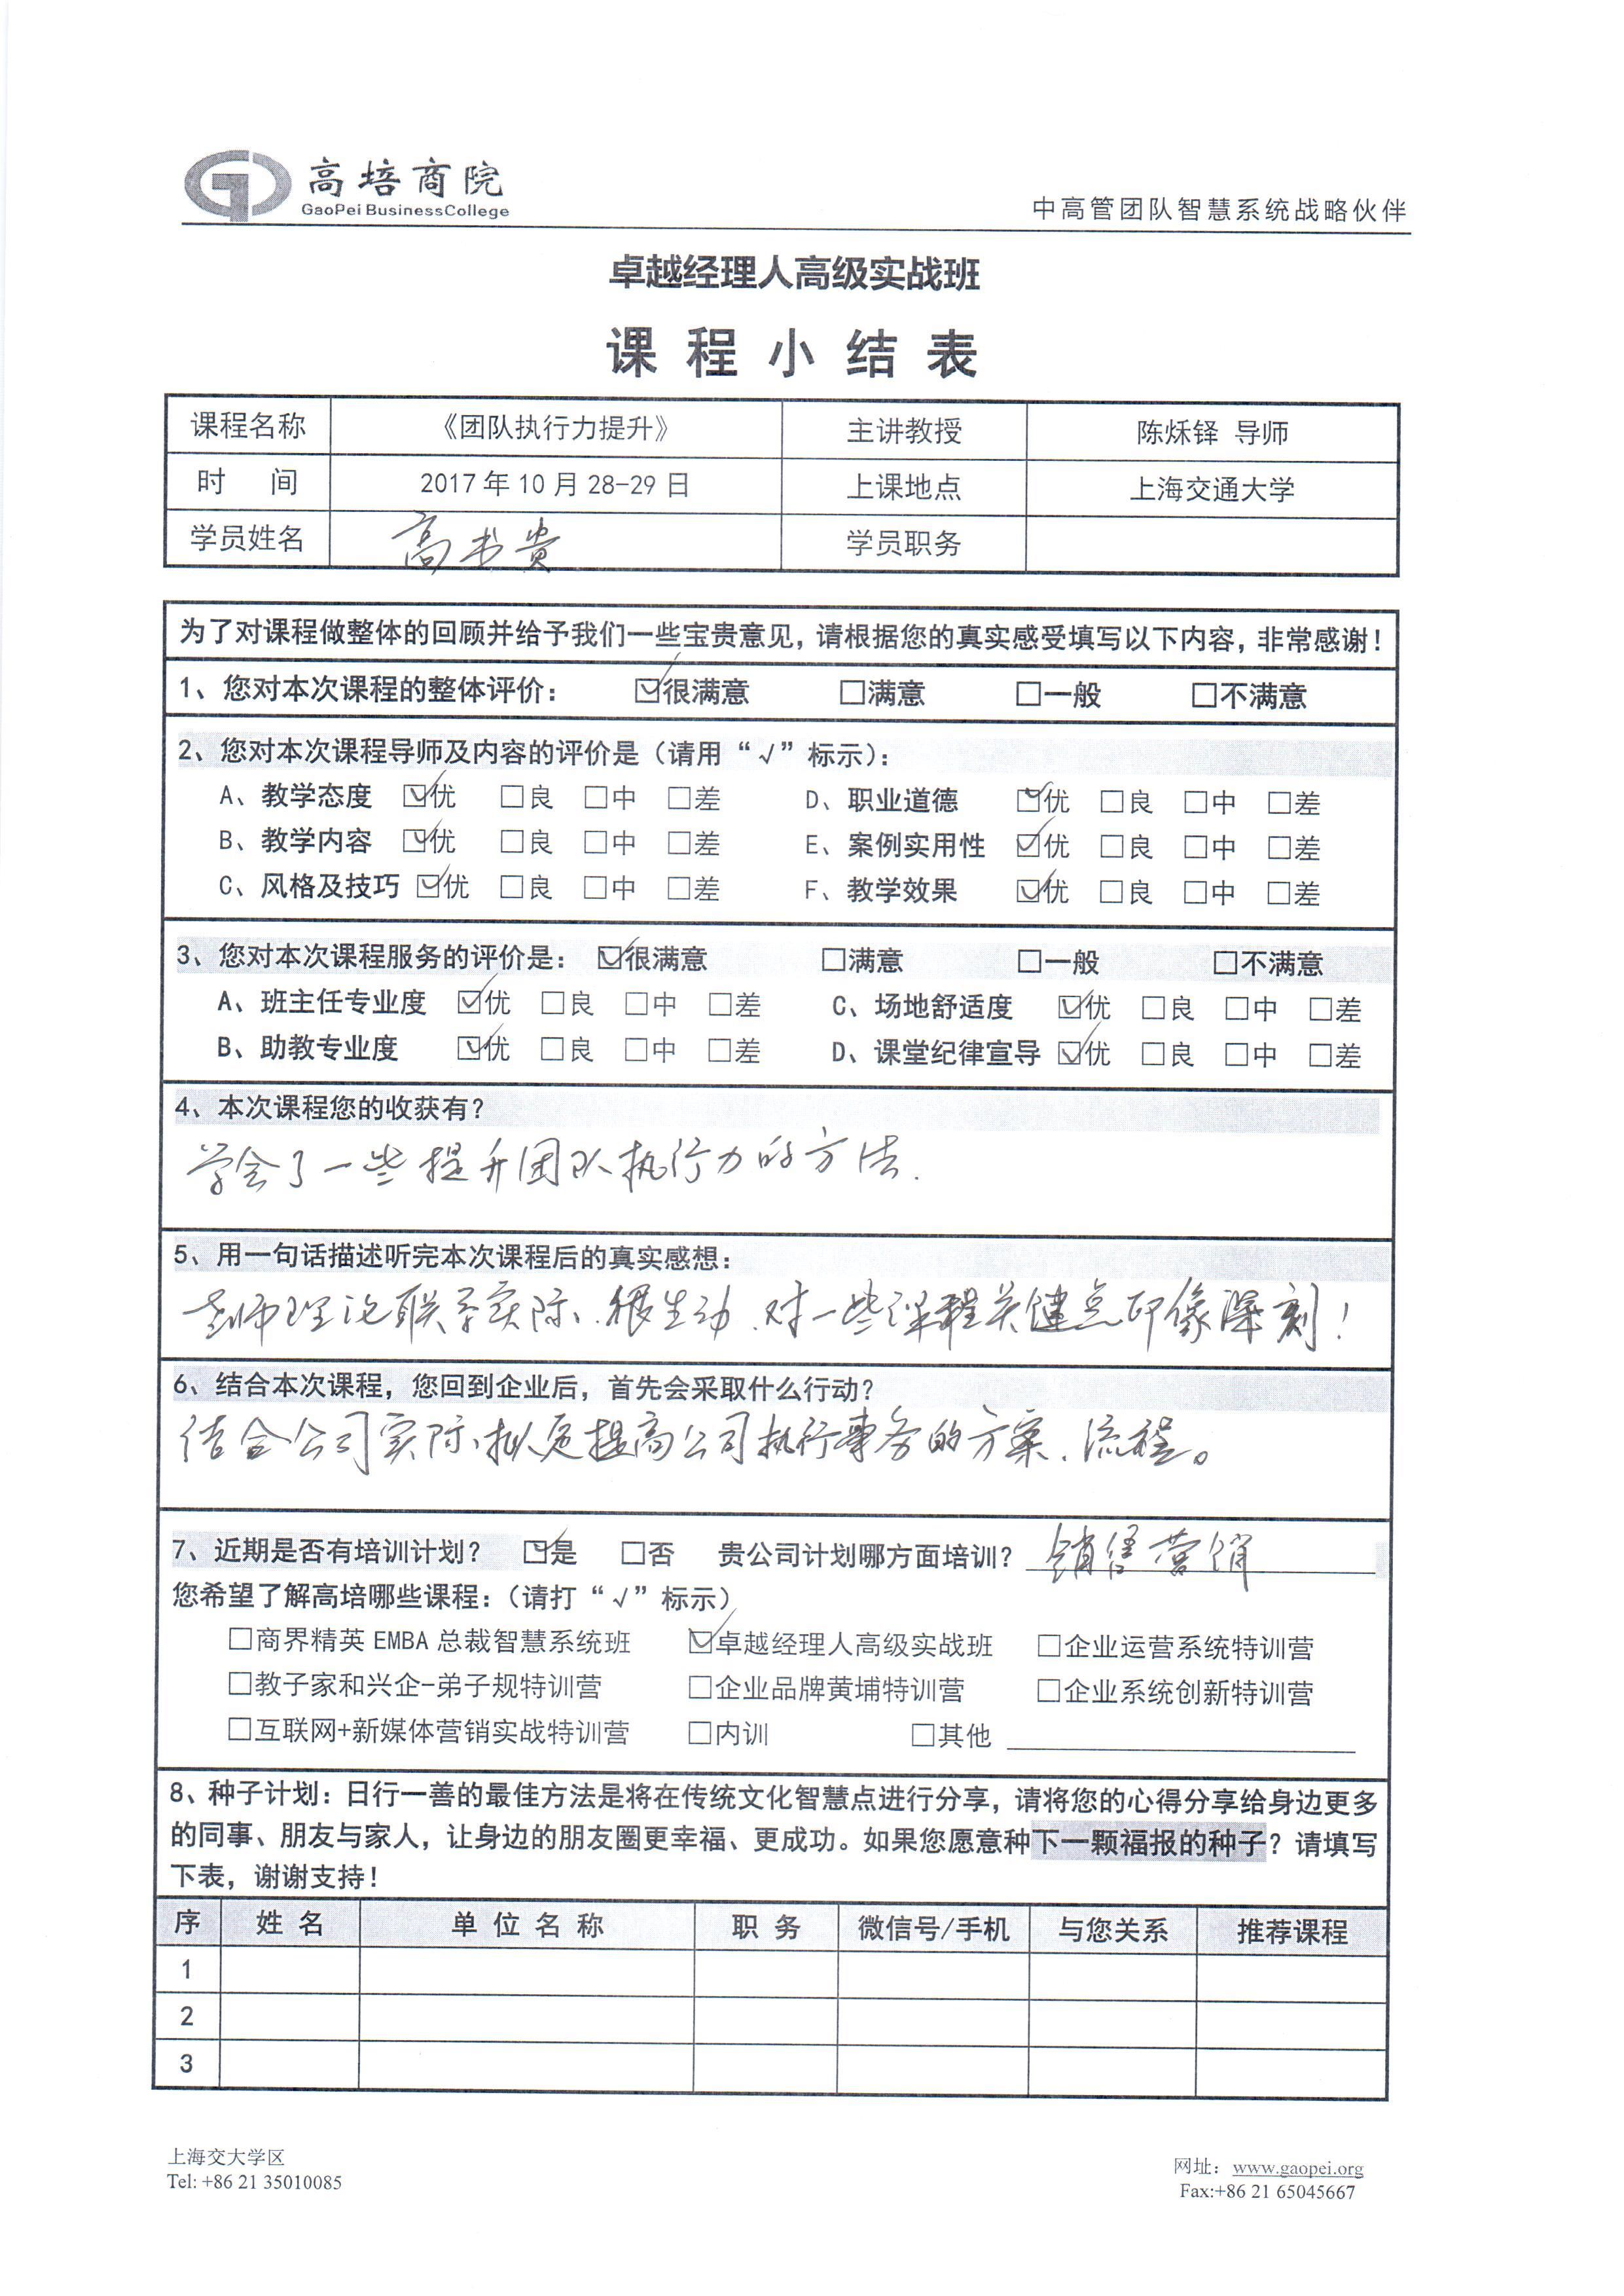 高培商院
GaoPei BusinessCollege
中高管团队智慧系统战略伙伴
卓越经理人高级实战班
课程小结表
课程名称 《团队执行力提升》 主讲教授 陈烁铎 导师
时 间 2017年10月28-29日 上课地点 上海交通大学
学员姓名 高书贵 学员职务
为了对课程做整体的回顾并给予我们一些宝贵意见，请根据您的真实感受填写以下内容，非常感谢！
1、您对本次课程的整体评价： ☑很满意 □满意 □一般 □不满意
2、您对本次课程导师及内容的评价是（请用“√”标示）：
A、教学态度 ☑优 □良 □中 □差 D、职业道德 ☑优 □良 □中 □差
B、教学内容 ☑优 □良 □中 □差 E、案例实用性 ☑优 □良 □中 □差
C、风格及技巧 ☑优 □良 □中 □差 F、教学效果 ☑优 □良 □中 □差
3、您对本次课程服务的评价是： ☑很满意 □满意 □一般 □不满意
A、班主任专业度 ☑优 □良 □中 □差 C、场地舒适度 ☑优 □良 □中 □差
B、助教专业度 ☑优 □良 □中 □差 D、课堂纪律宣导 ☑优 □良 □中 □差
4、本次课程您的收获有？
学会了一些提升团队执行力的方法.
5、用一句话描述听完本次课程后的真实感想：
老师理论联系实际、很生动、对一些课程关键点印像深刻！
6、结合本次课程，您回到企业后，首先会采取什么行动？
结合公司实际、拟定提高公司执行事务的方案、流程。
7、近期是否有培训计划？ ☑是 □否 贵公司计划哪方面培训？ 销售营销
您希望了解高培哪些课程：（请打“√”标示）
□商界精英EMBA总裁智慧系统班 ☑卓越经理人高级实战班 □企业运营系统特训营
□教子家和兴企-弟子规特训营 □企业品牌黄埔特训营 □企业系统创新特训营
□互联网+新媒体营销实战特训营 □内训 □其他
8、种子计划：日行一善的最佳方法是将在传统文化智慧点进行分享，请将您的心得分享给身边更多
的同事、朋友与家人，让身边的朋友圈更幸福、更成功。如果您愿意种下一颗福报的种子？请填写
下表，谢谢支持！
序 姓 名 单 位 名 称 职 务 微信号/手机 与您关系 推荐课程
1
2
3
上海交大学区
Tel: +86 21 35010085
网址：www.gaopei.org
Fax:+86 21 65045667